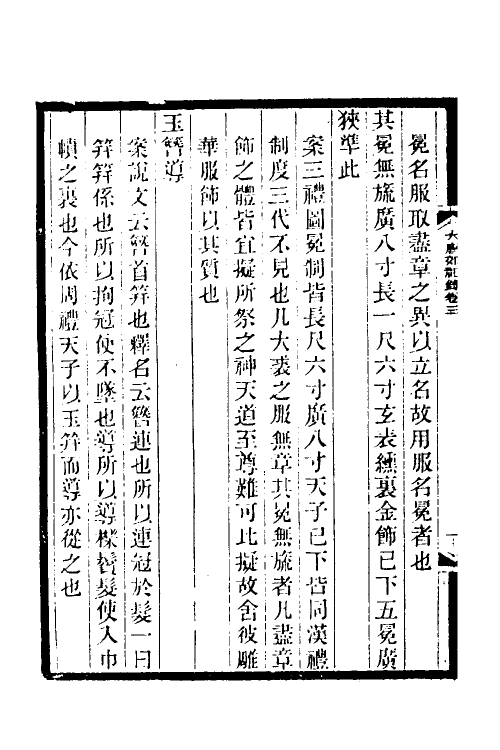 大唐郊祀錄卷三
冕名服取盡章之異以立名故用服名冕者也
其冕無旒廣八寸長一尺六寸玄表纁裏金飾已下五冕廣
狹準此
案三禮圖冕制皆長尺六寸廣八寸天子已下皆同漢禮
制度三代不見也凡大裘之服無章其冕無旒者凡盡章
飾之體皆宜擬所祭之神天道至尊難可比擬故舍彼雕
華服飾以其質也
玉簪導
案說文云簪首笄也釋名云簪連也所以連冠於髮一曰
笄笄係也所以拘冠使不墜也導所以導櫟鬢髮使入巾
幘之裏也今依周禮天子以玉笄而導亦從之也